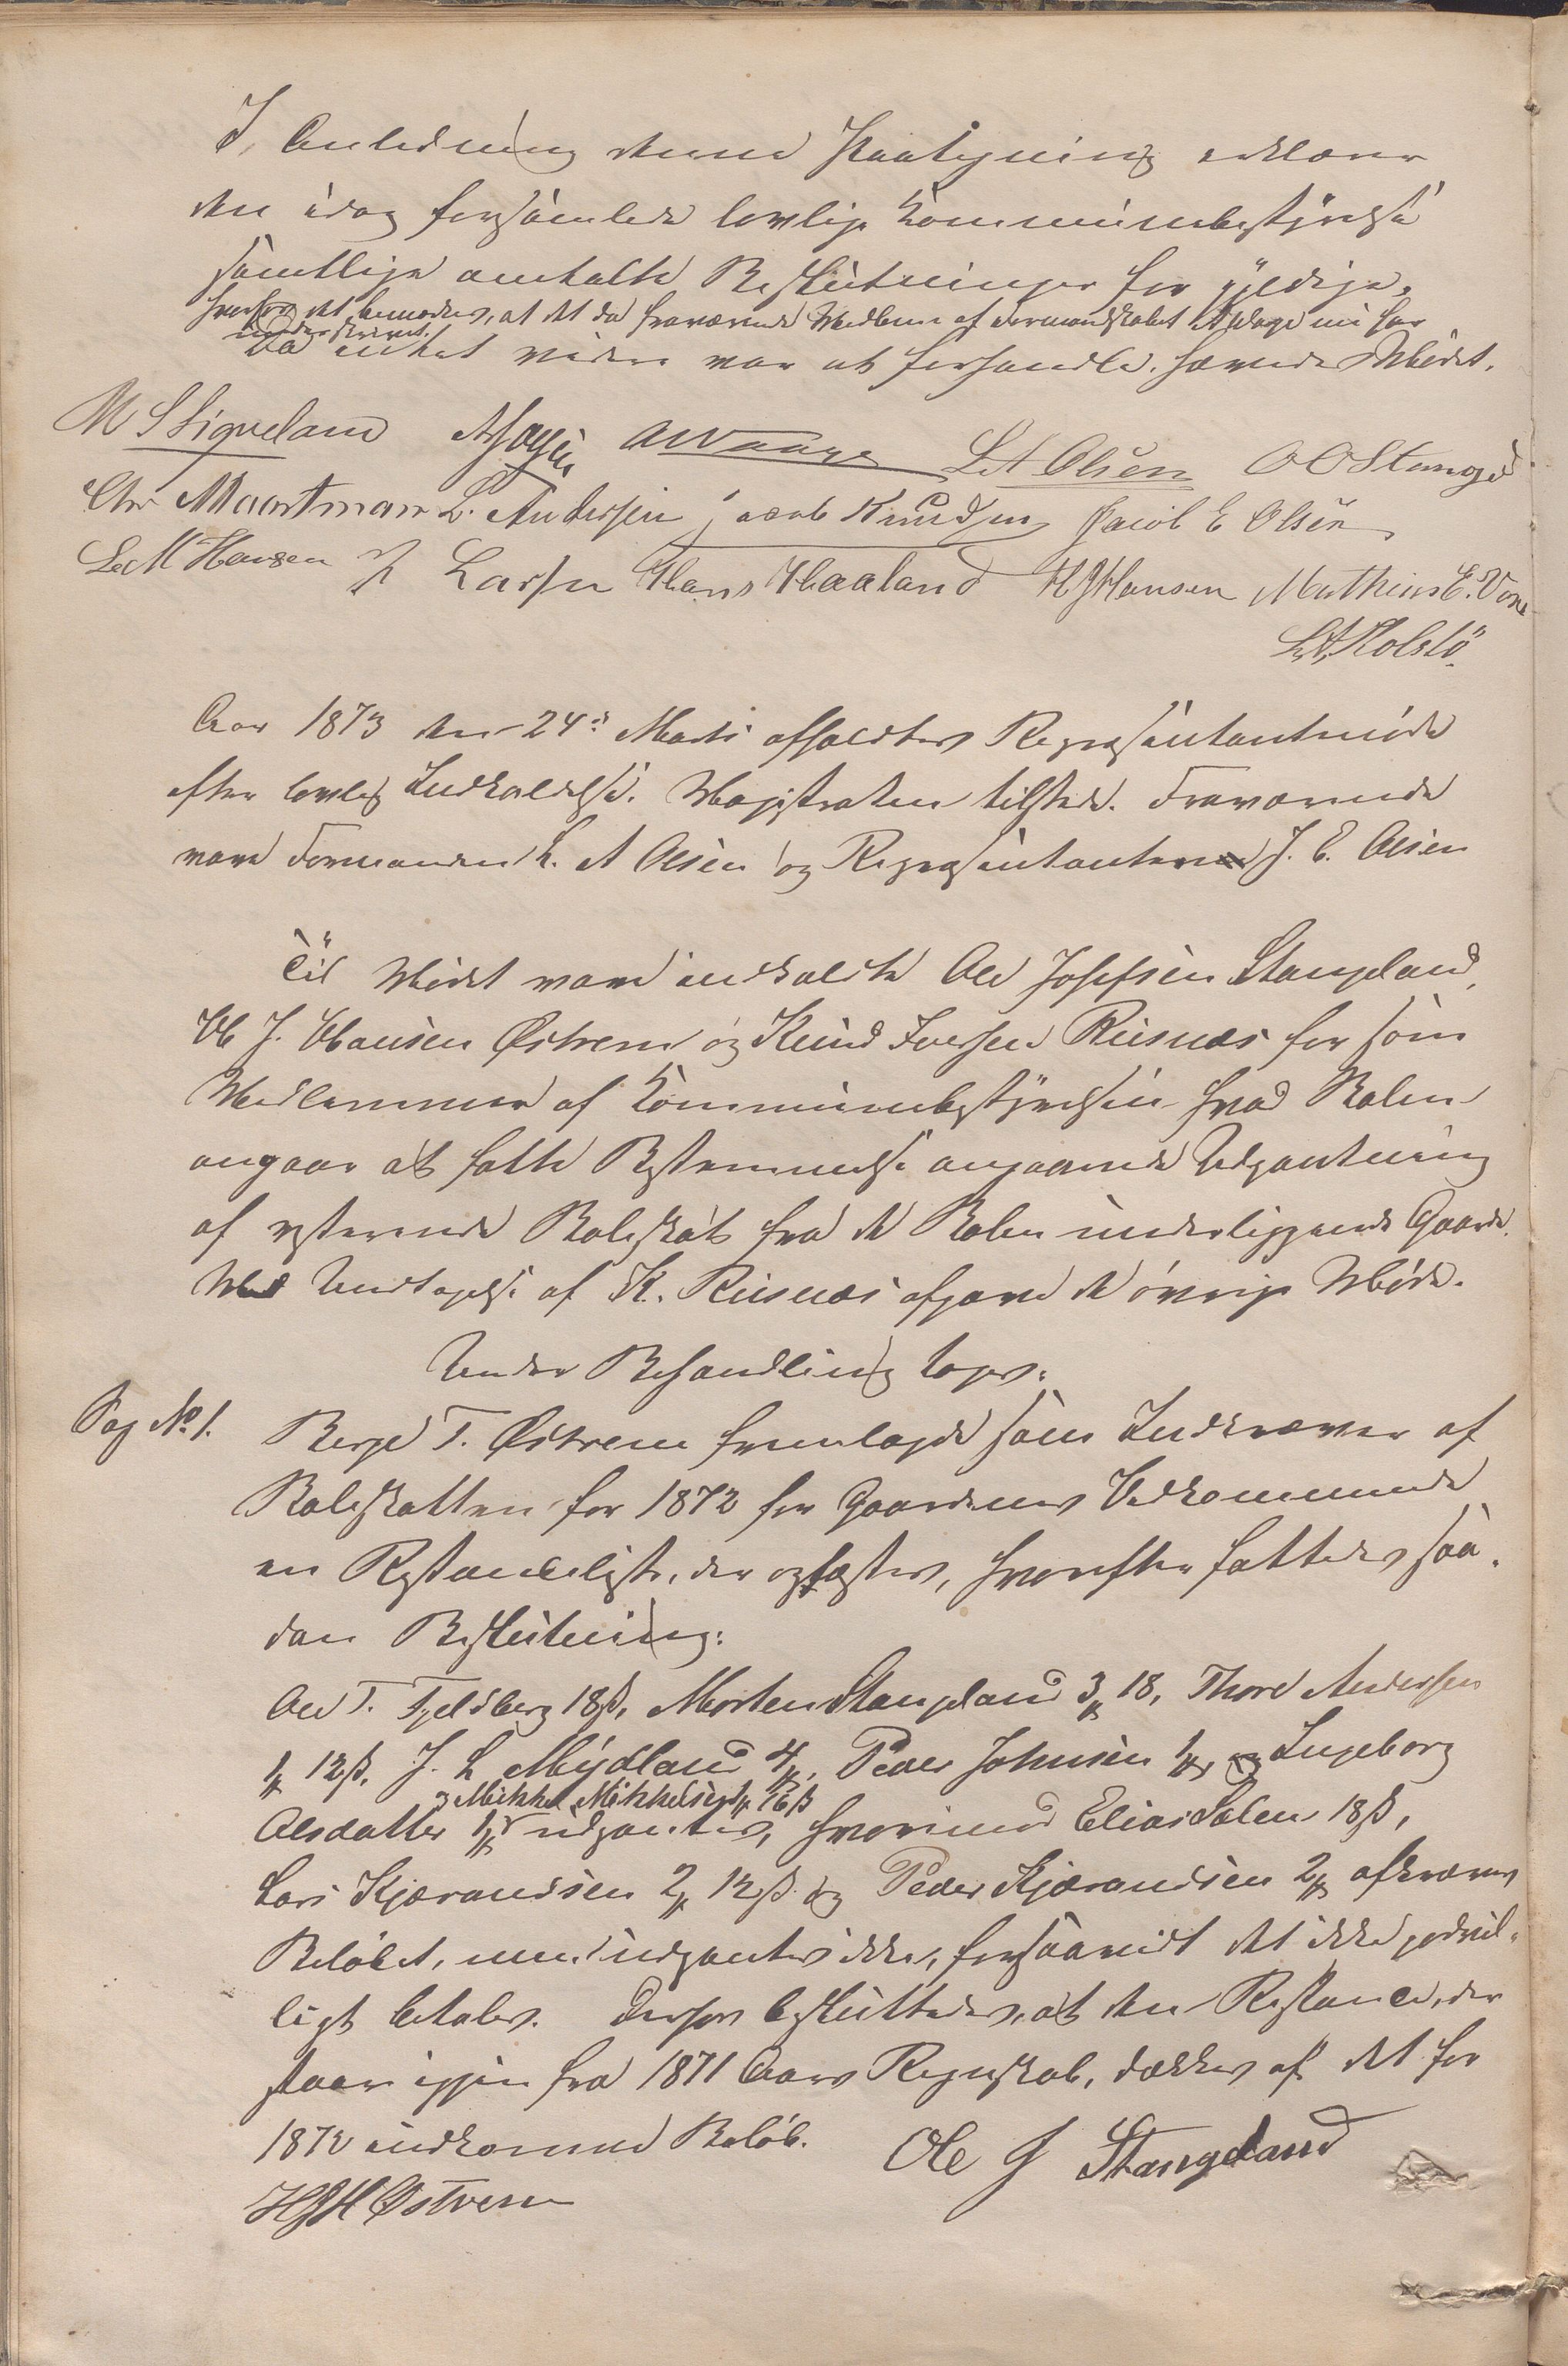 I Anledning denne Paategning erklærer
den idag forsamlede lovlige Kommunebestyrelse
samtlige omhalte Beslutninger for gyldige,
hvorhos det bemærkes, at det da fraværende Medlem af Formandskabet A Waage nu har
underskrevet.
Da intet videre var at forhandle hævedes Mødet.
M S Liqveland A Waage L A Olsen O O Stangeland
Chr Maartman L. Andersen Jacob Knudsen Jacob E Olsen
L M Hansen Larsen Hans Haaland H J Hansen Mathias E. Vore
L A Holstö
Aar 1873 den 24de Marts afholdtes Repræsentantmøde
efter lovlig Indkaldelse. Magistraten tilstede. Fraværende
vare Formanden L. A Olsen og Repræsentanten J. E. Olsen
Til Mødet vare indkaldte Ole Josefsen Stangeland,
H J. Hansen Østrem og Knud Iversen Risnæs for som
Medlemmer af Kommunebestyrelsen hvad Rolen
angaar at fatte Bestemmelse angaaende Udpantning
af resterende Roleskat fra de Rolen underliggende Gaarde.
Med Undtagelse af K. Risnæs afgave de øvrige Møde.
Under Behandling toges:
Sag No. 1. Berge T. Østrem fremlagde som Indkræver af
Roleskatten for 1872 for Gaardenes Vedkommende
en Restanceliste, der oplæstes, hvorefter fattedes saa-
dan Beslutning:
Ole T. Fjeldberg 18 ß, Morten Stangeland 3 18, Thore Andersen
1 12 ß, J. L Mydland 4, Peder Johnsen 1, og Ingeborg
og Mikkel Mikkelsen 16 ß
Olsdatter 1 udpantes, hvorimod Elias Salen 18 ß,
Lars Kjærandsen 2 12 ß og Peder Kjærandsen 2 afkræves
Beløbet, men udpantes ikke, forsaavidt det ikke godvil-
ligt betales. Derhos besluttedes, at den Restance, der
staar igjen fra 1871 Aars Regnskab, dækkes af det for
1872 indkomne Beløb. Ole J Stangeland
H J H Østrem